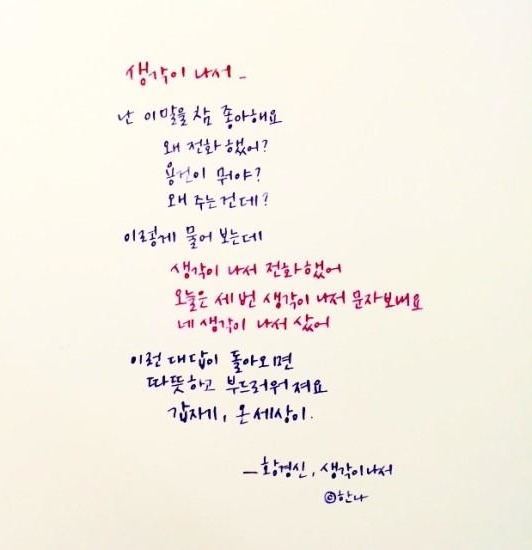 생각이 나서_
난 이 말을 참 좋아해요
왜 전화했어?
용건이 뭐야?
왜 주는건데?
이렇게 물어 보는데
생각이 나서 전화했어
오늘은 세 번 생각이 나서 문자보내요
네 생각이 나서 샀어
이런 대답이 돌아오면
따뜻하고 부드러워져요
갑자기, 온 세상이.
— 황경신, 생각이나서
©한나